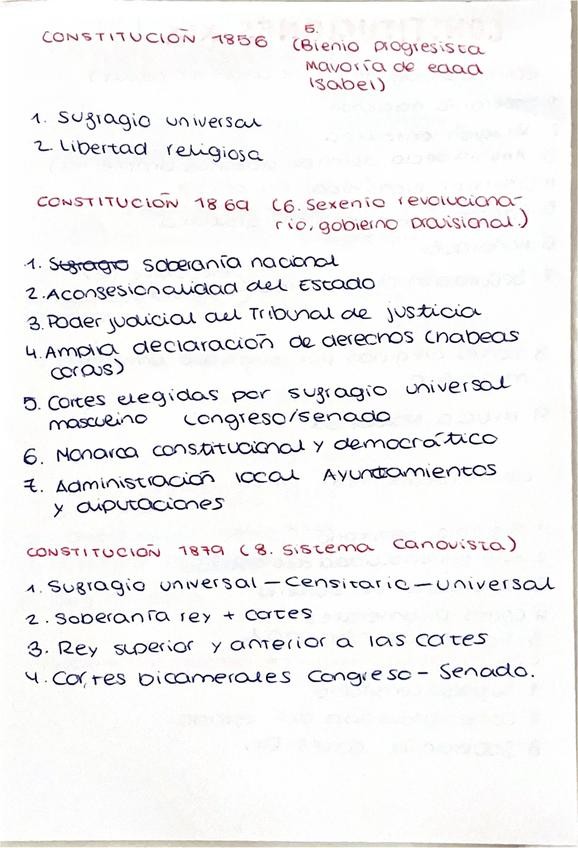 5.
CONSTITUCIÓN 1856 (Bienio progresista
Mayoría de edad
Isabel)
1. Sufragio universal
2. Libertad religiosa
CONSTITUCIÓN 1869 (6. Sexenio revoluciona-
rio, gobierno provisional.)
1. Sufragio soberanía nacional
2. Aconfesionalidad del Estado
3. Poder judicial del Tribunal de justicia
4. Amplia declaración de derechos (habeas
corpus)
5. Cortes elegidas por sufragio universal
masculino Congreso/senado
6. Monarca constitucional y democrático
7. Administración local Ayuntamientos
y diputaciones
CONSTITUCIÓN 1879 (8. Sistema Canovista)
1. Sufragio universal - Censitario - universal
2. Soberanía rey + cortes
3. Rey superior y anterior a las cortes
4. Cortes bicamerales Congreso - Senado.